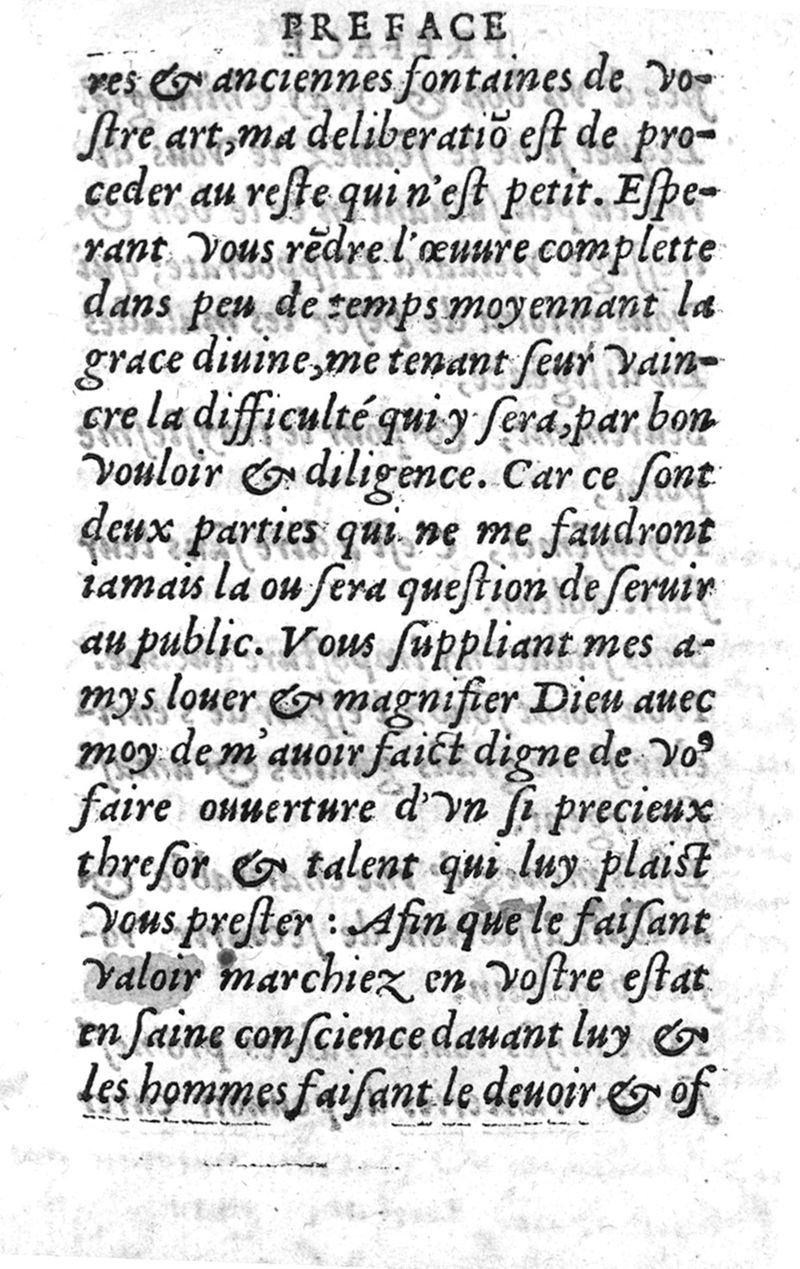 PREFACE
res & anciennes fontaines de vo-
ſtre art, ma deliberatiõ eſt de pro-
ceder au reſte qui n'eſt petit. Eſpe-
rant vous rẽdre l'œuure complette
dans peu de temps moyennant la
grace diuine, me tenant ſeur vain-
cre la difficulté qui y ſera, par bon
vouloir & diligence. Car ce ſont
deux parties qui ne me faudront
iamais la ou ſera queſtion de ſeruir
au public. Vous ſuppliant mes a-
mys louer & magnifier Dieu auec
moy de m'auoir faict digne de voꝰ
faire ouuerture d'vn ſi precieux
threſor & talent qui luy plaiſt
vous preſter : Afin que le faiſant
valoir marchiez en voſtre eſtat
en ſaine conſcience dauant luy &
les hommes faiſant le deuoir & of